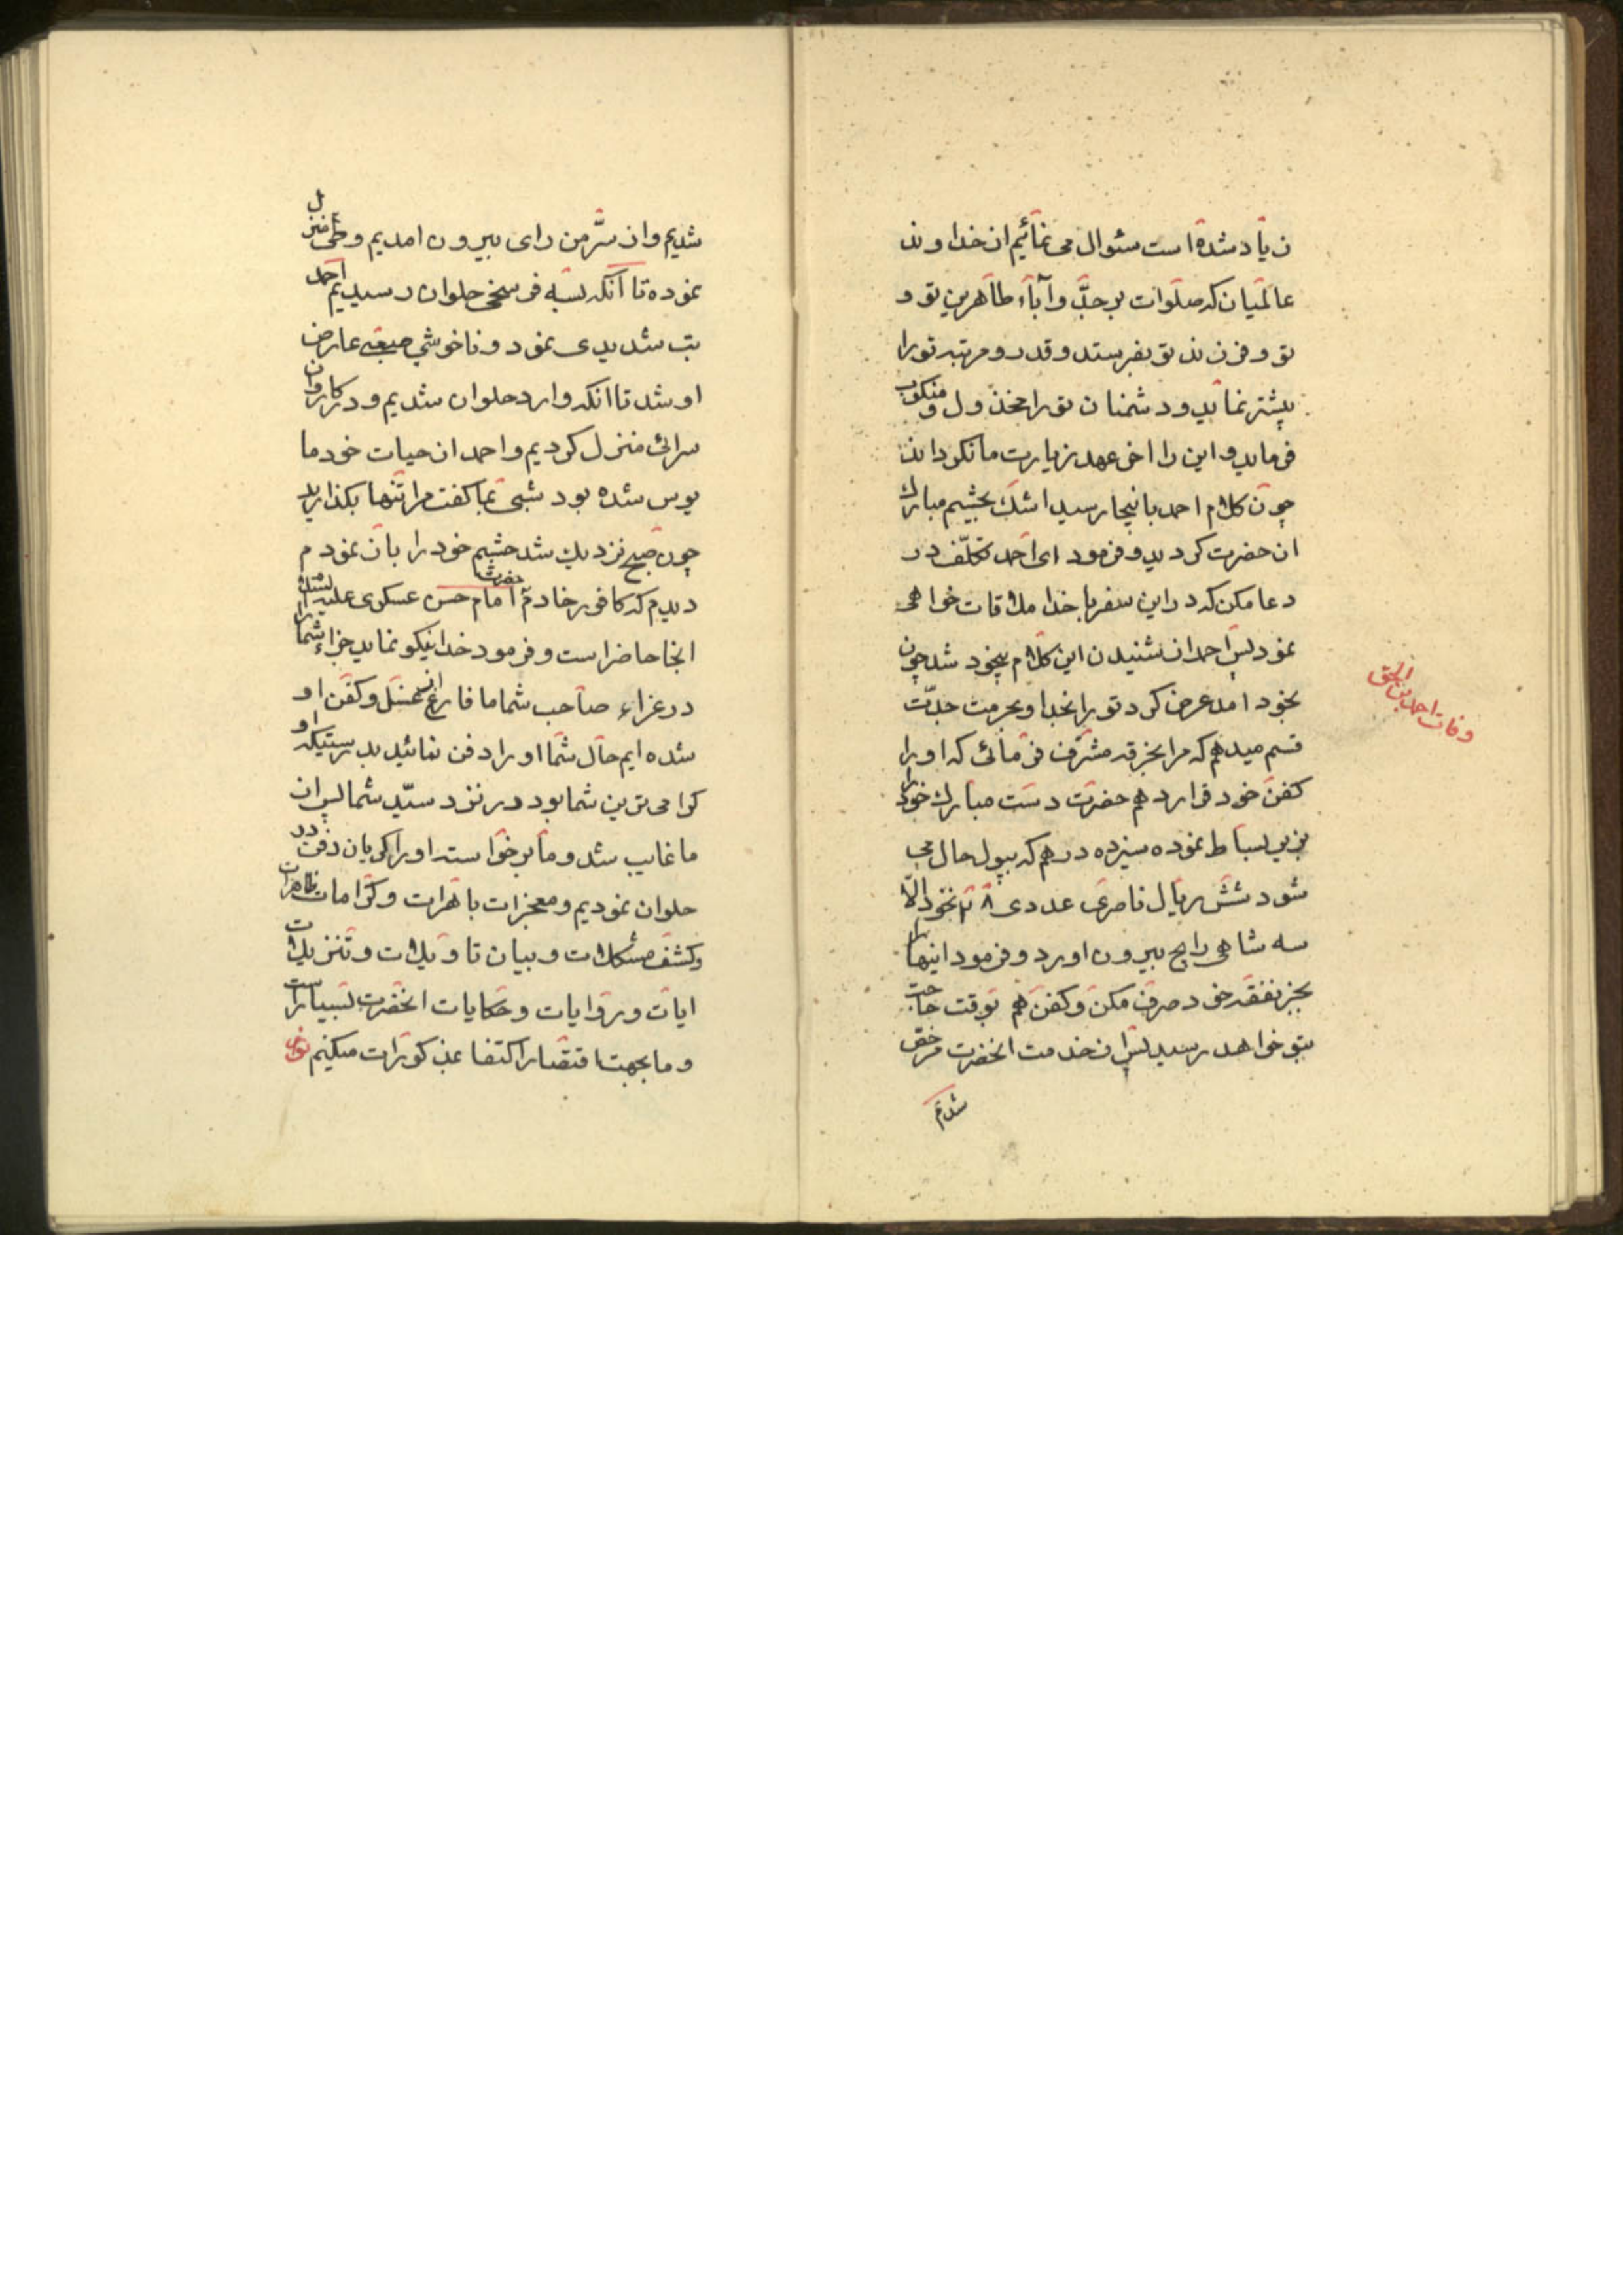 زیاد شده است سئوال می نمائیم از خداوند
عالمیان که صلوات بر جدّ و آباء طاهرین تو و
تو و فرزند تو بفرستد و قدر و مرتبه تو را
بیشتر نماید و دشمنان تو را مخذول و منکوب
فرماید و این را اخر عهد زیارت ما نکرداند
چون کلام احمد باینجا رسید اشک بچشم مبارک
ان حضرت کردید و فرمود ای احمد تکلّف در
دعا مکن که در این سفر با خدا ملاقات خواهی
نمود پس احمد از شنیدن این کلام بیخود شد چون
بخود امد عرض کرد تو را بخدا و بحرمت جدّت
قسم میدهم که مرا بخرقه مشرّف فرمائی که او را
کفن خود قرار دهم حضرت دست مبارک خود را
بزیر بساط نموده سیزده درهم که بپول حال می
شود شش ریال ناصری عددی ۲۸ نخود الّا
سه شاهی رایج بیرون اورد و فرمود اینها را
بجز نفقه خود صرف مکن و کفن هم بوقت حاجت
بتو خواهد رسید پس از خدمت انحضرت مرخص
شدم
وفات احمد بن اسحق
شدیم و از سرّ من رای بیرون امدیم و طی منزل
نموده تا آنکه بسه فرسخی حلوان رسیدیم احمد
تب شدیدی نمود و ناخوشی صعبی عارض
او شد تا انکه وارد حلوان شدیم و در کاروان
سرائی منزل کردیم و احمد از حیات خود ما
یوس شده بود شبی بما کفت مرا تنها بکذارید
چون صبح نزدیک شد چشم خود را باز نمودم
دیدم که کافور خادم حضرت امام حسن عسکری علیه السلام
انجا حاضر است و فرمود خدا نیکو نماید جزاء شما را
در عزاء صاحب شما ما فارغ از غسل و کفن او
شده ایم حال شما او را دفن نمائید بدرستیکه او
کرامی ترین شما بود در نزد سیّد شما پس از
ما غایب شد و ما برخواسته او را کریان دفن در
حلوان نمودیم و معجزات باهرات و کرامات ظاهرات
و کشف مشکلات و بیان تاویلات و تنزیلات
ایات و روایات و حکایات انحضرت بسیار است
و ما بجهت اقتصار اکتفا بمذکورات میکنیم